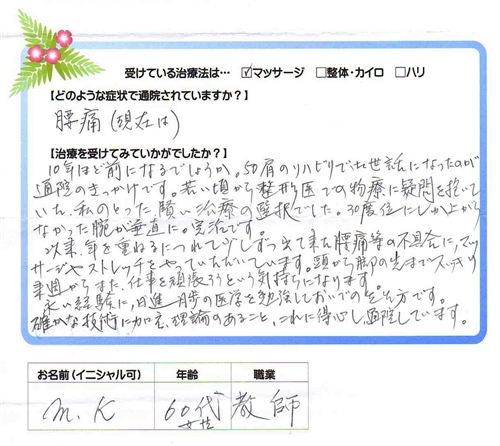 受けている治療法は… ☑マッサージ □整体・カイロ □ハリ
【どのような症状で通院されていますか？】
腰痛(現在は)
【治療を受けてみていかがでしたか？】
10年ほど前になるでしょうか。50肩のリハビリでお世話になったのが
通院のきっかけです。若い頃から整形医での物療に疑問を抱いて
いた、私のとった賢い治療の選択でした。30度位にしか上がら
なかった腕が垂直に。完治です。
以来、年を重ねるにつれて少しずつ出て来た腰痛等の不具合に、マッ
サージやストレッチをやっていただいています。頭から脚の先までスッキリ
来週からまた、仕事を頑張ろうという気持ちになります。
永い経験に、日進一歩の医学を勉強しておいでの先生方です。
確かな技術に加え、理論のあること、これに得心し通院しています。
お名前(イニシャル可) 年齢 職業
M.K 60代 教師
女性